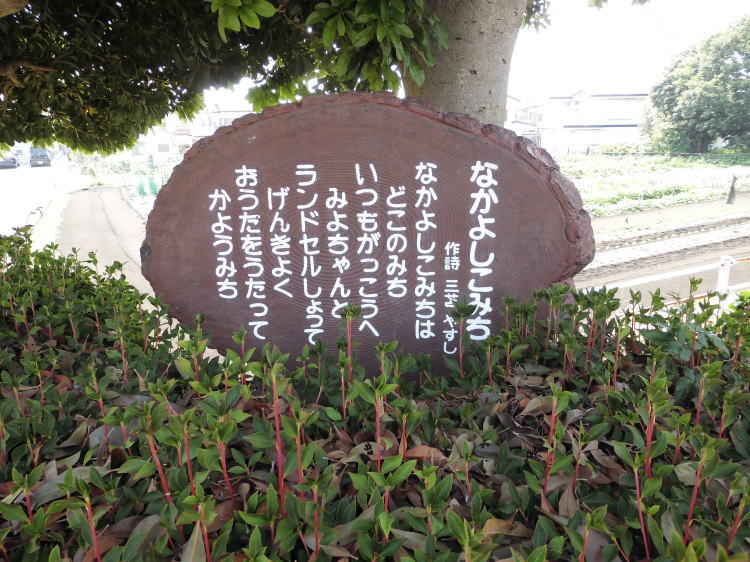 なかよしこみち
作詩 三苫やすし
なかよしこみちは
どこのみち
いつもがっこうへ
みよちゃんと
ランドセルしょって
げんきよく
おうたをうたって
かようみち